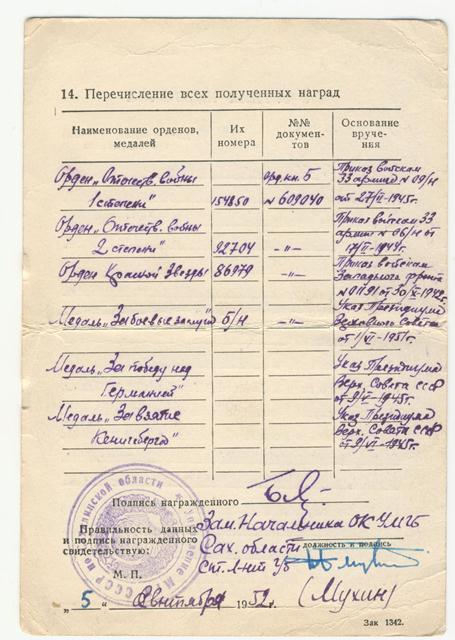 14. Перечисление всех полученных наград
Наименование орденов, медалей
Их номера
№№ документов
Основание вручения
Орден „Отечеств. войны 1 степени" 154850 орд. кн. Б № 609040 Приказ войскам 33 армии № 09/н от 27/II-1945г.
Орден „Отечеств. войны 2 степени" 92704 -„- Приказ войскам 33 армии № 06/н от
Орден Красной Звезды 86979 -„- Приказ войскам Западного фронта
Медаль „За боевые заслуги" б/н -„- Указ Президиума Верховного Совета от 1/VI-1951г.
Медаль „За победу над Германией" Указ Президиума Верх. Совета СССР от 9/V-1945г.
Медаль „За взятие Кенигсберга" Указ Президиума Верх. Совета СССР от 9/VI-1945г.
Подпись награжденного
Правильность данных и подпись награжденного свидетельствую:
Зам. Начальника ОК УМГБ
Сах. области
должность и подпись
Ст. л-нт г/б
М. П.
(Мухин)
„ 5 " сентября 1952 г.
Зак 1342.